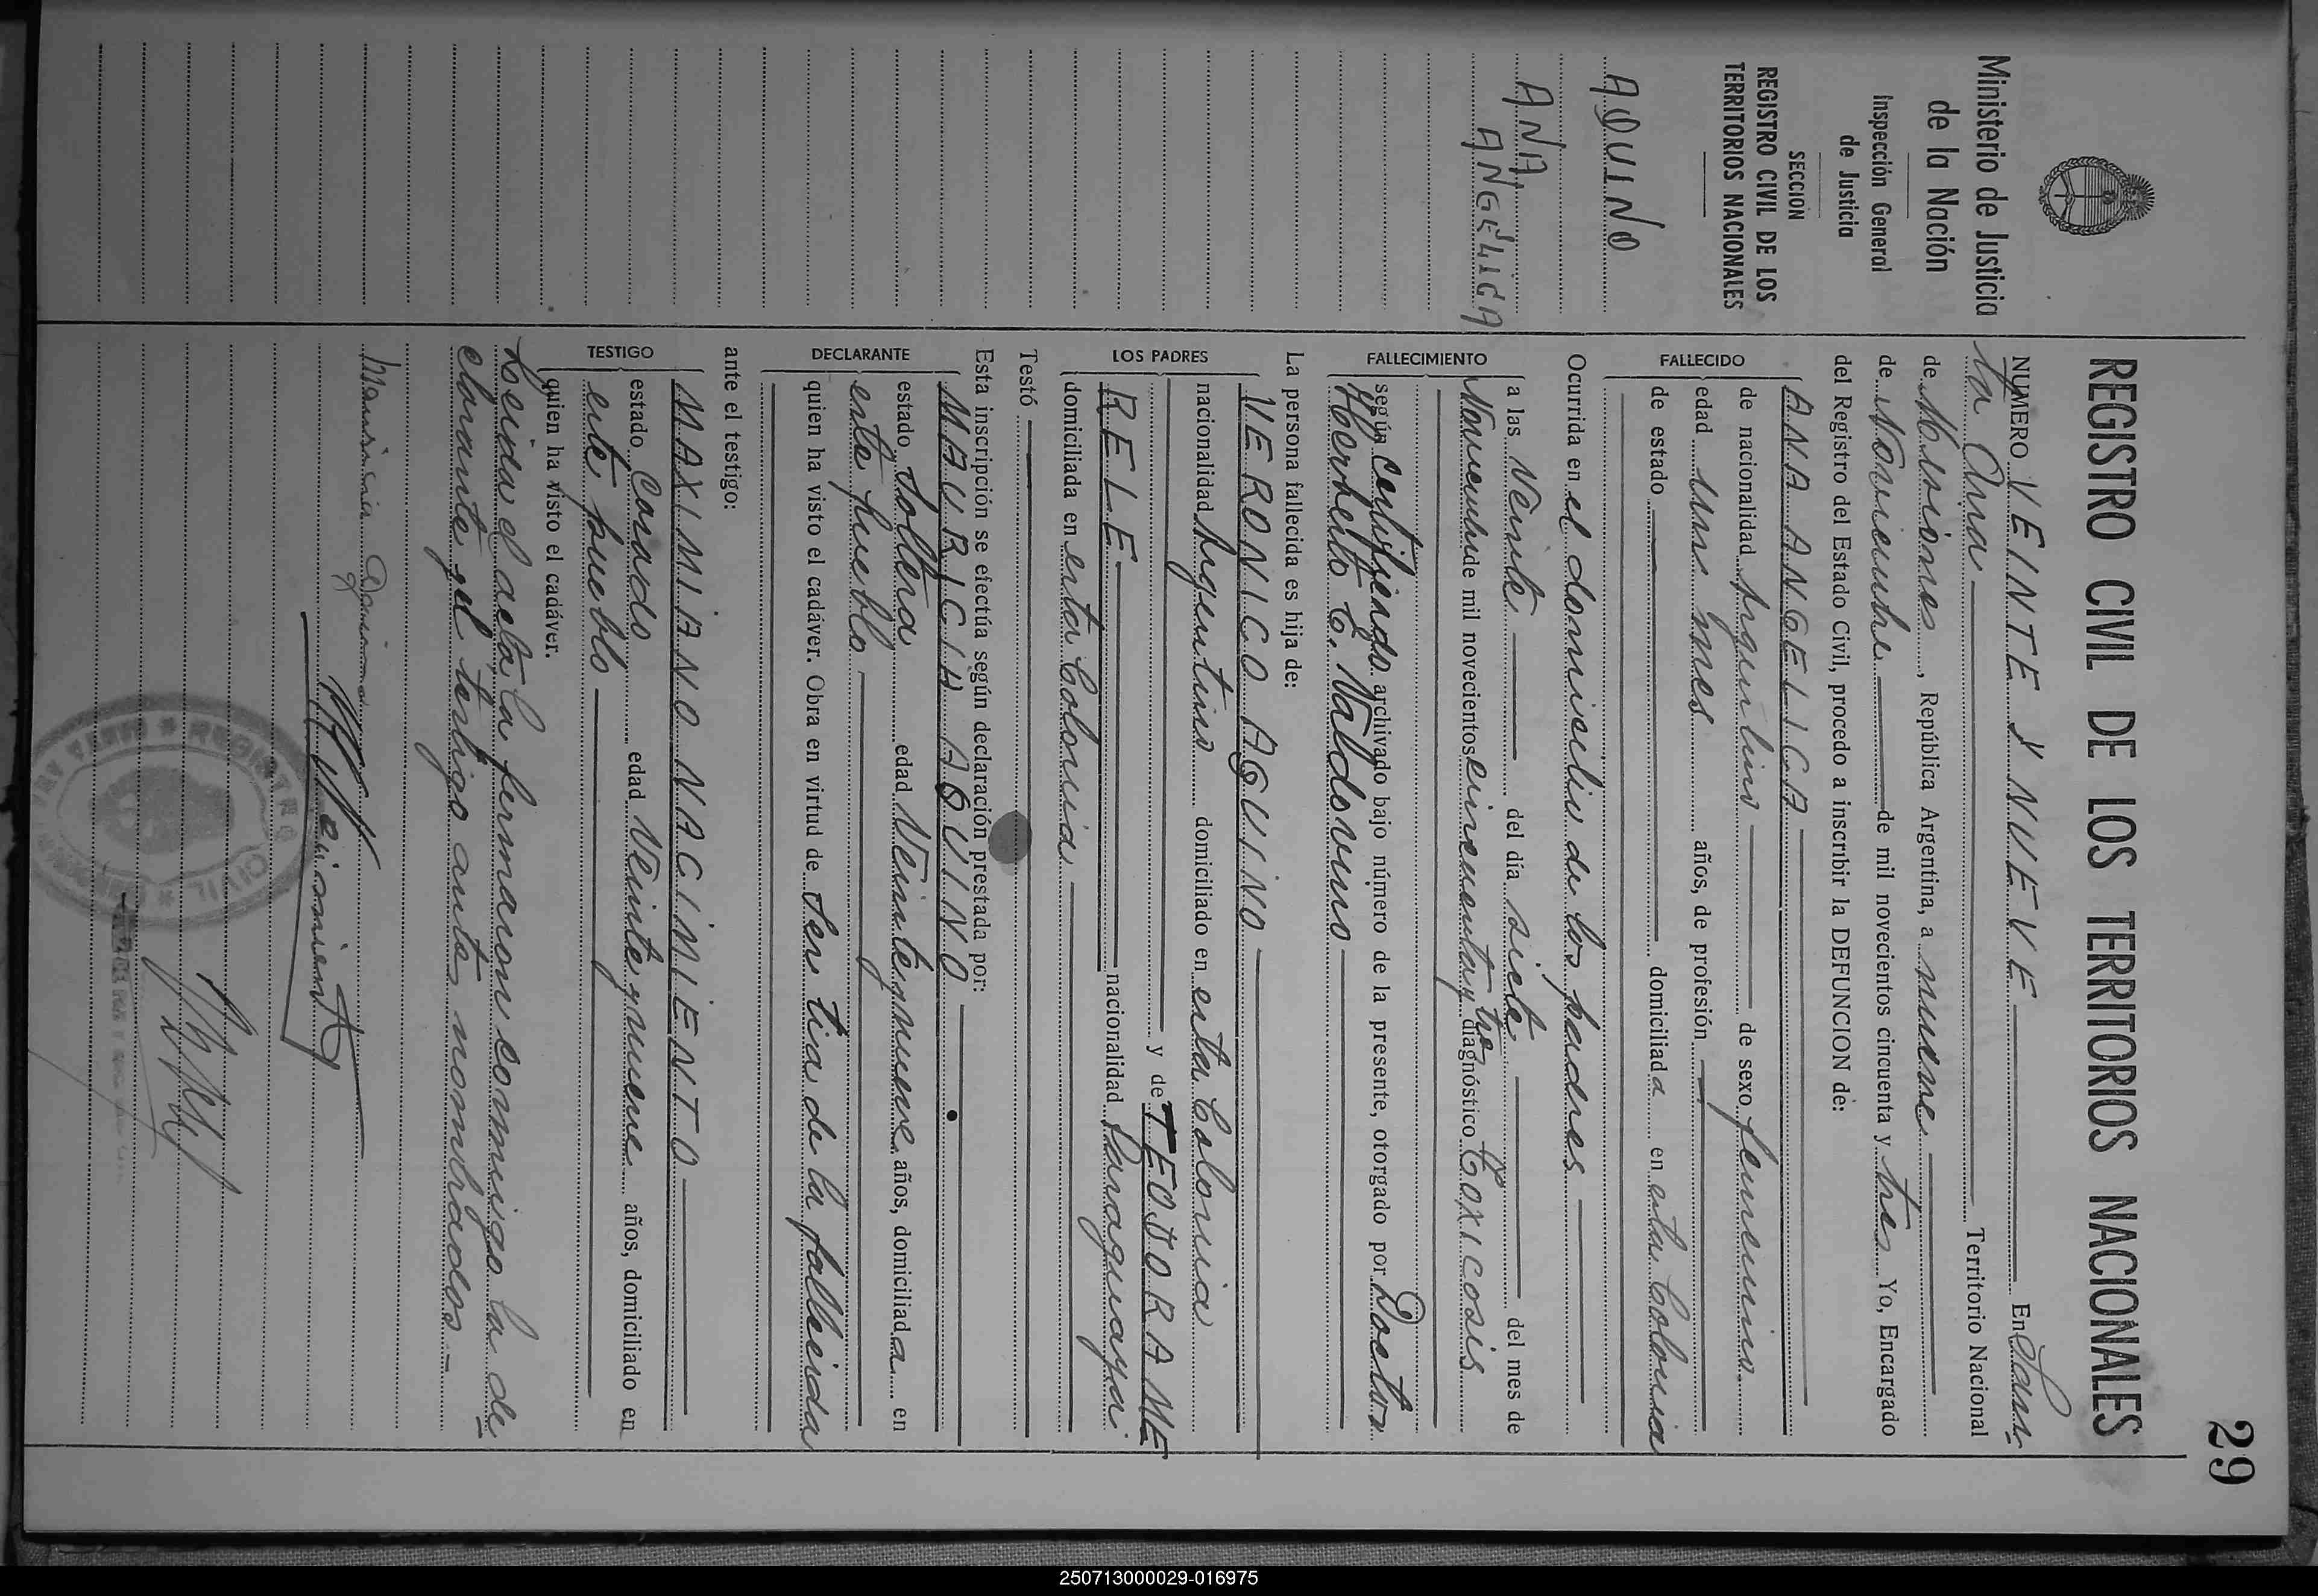 29
Ministerio de Justicia
de la Nación
Inspección General
de Justicia
SECCION
REGISTRO CIVIL DE LOS
TERRITORIOS NACIONALES
AQUINO
ANA
ANGÉLICA
REGISTRO CIVIL DE LOS TERRITORIOS NACIONALES
NUMERO VEINTE Y NUEVE En San-
ta Ana Territorio Nacional
de Misiones, República Argentina, a nueve
de Noviembre de mil novecientos cincuenta y tres Yo, Encargado
del Registro del Estado Civil, procedo a inscribir la DEFUNCION de:
FALLECIDO
ANA ANGELICA
de nacionalidad Argentino de sexo femenino
edad un mes años, de profesión
de estado domiciliada en esta Colonia
Ocurrida en el domicilio de los padres
FALLECIMIENTO
a las veinte del día siete del mes de
Noviembre de mil novecientos cincuenta y tres diagnóstico Toxicosis
según certificado archivado bajo número de la presente, otorgado por Doctor
Heriberto E. Valdovino
La persona fallecida es hija de:
LOS PADRES
VERONICO AQUINO
nacionalidad Argentino domiciliado en esta Colonia
y de TEODORA ME
RELE nacionalidad Paraguaya
domiciliada en esta Colonia
Testó
Esta inscripción se efectúa según declaración prestada por:
DECLARANTE
MAURICIA AQUINO
estado soltera edad Veintey nueve años, domiciliada en
este pueblo
quien ha visto el cadáver. Obra en virtud de ser tia de la fallecida
ante el testigo:
TESTIGO
MAXIMIANO NACIMIENTO
estado Casado edad Veinte y nueve años, domiciliado en
este pueblo
quien ha visto el cadáver.
Leida el acta la firmaron conmigo la de
clarante y el testigo antes nombrados.-
Mauricia Aquino
REGISTRO CIVIL
250713000029-016975